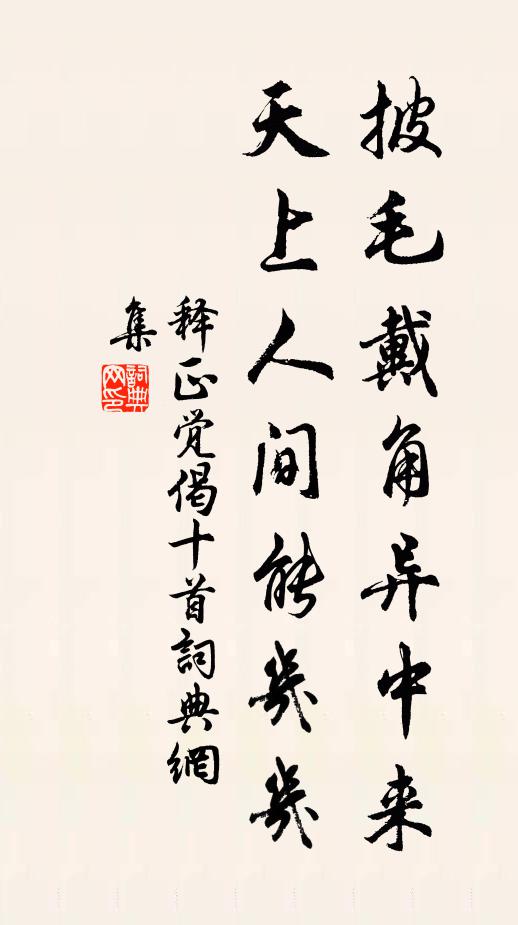 披毛戴角异中来
天上人间能几几
释正觉偈十首詞典網
集
詞典
网印